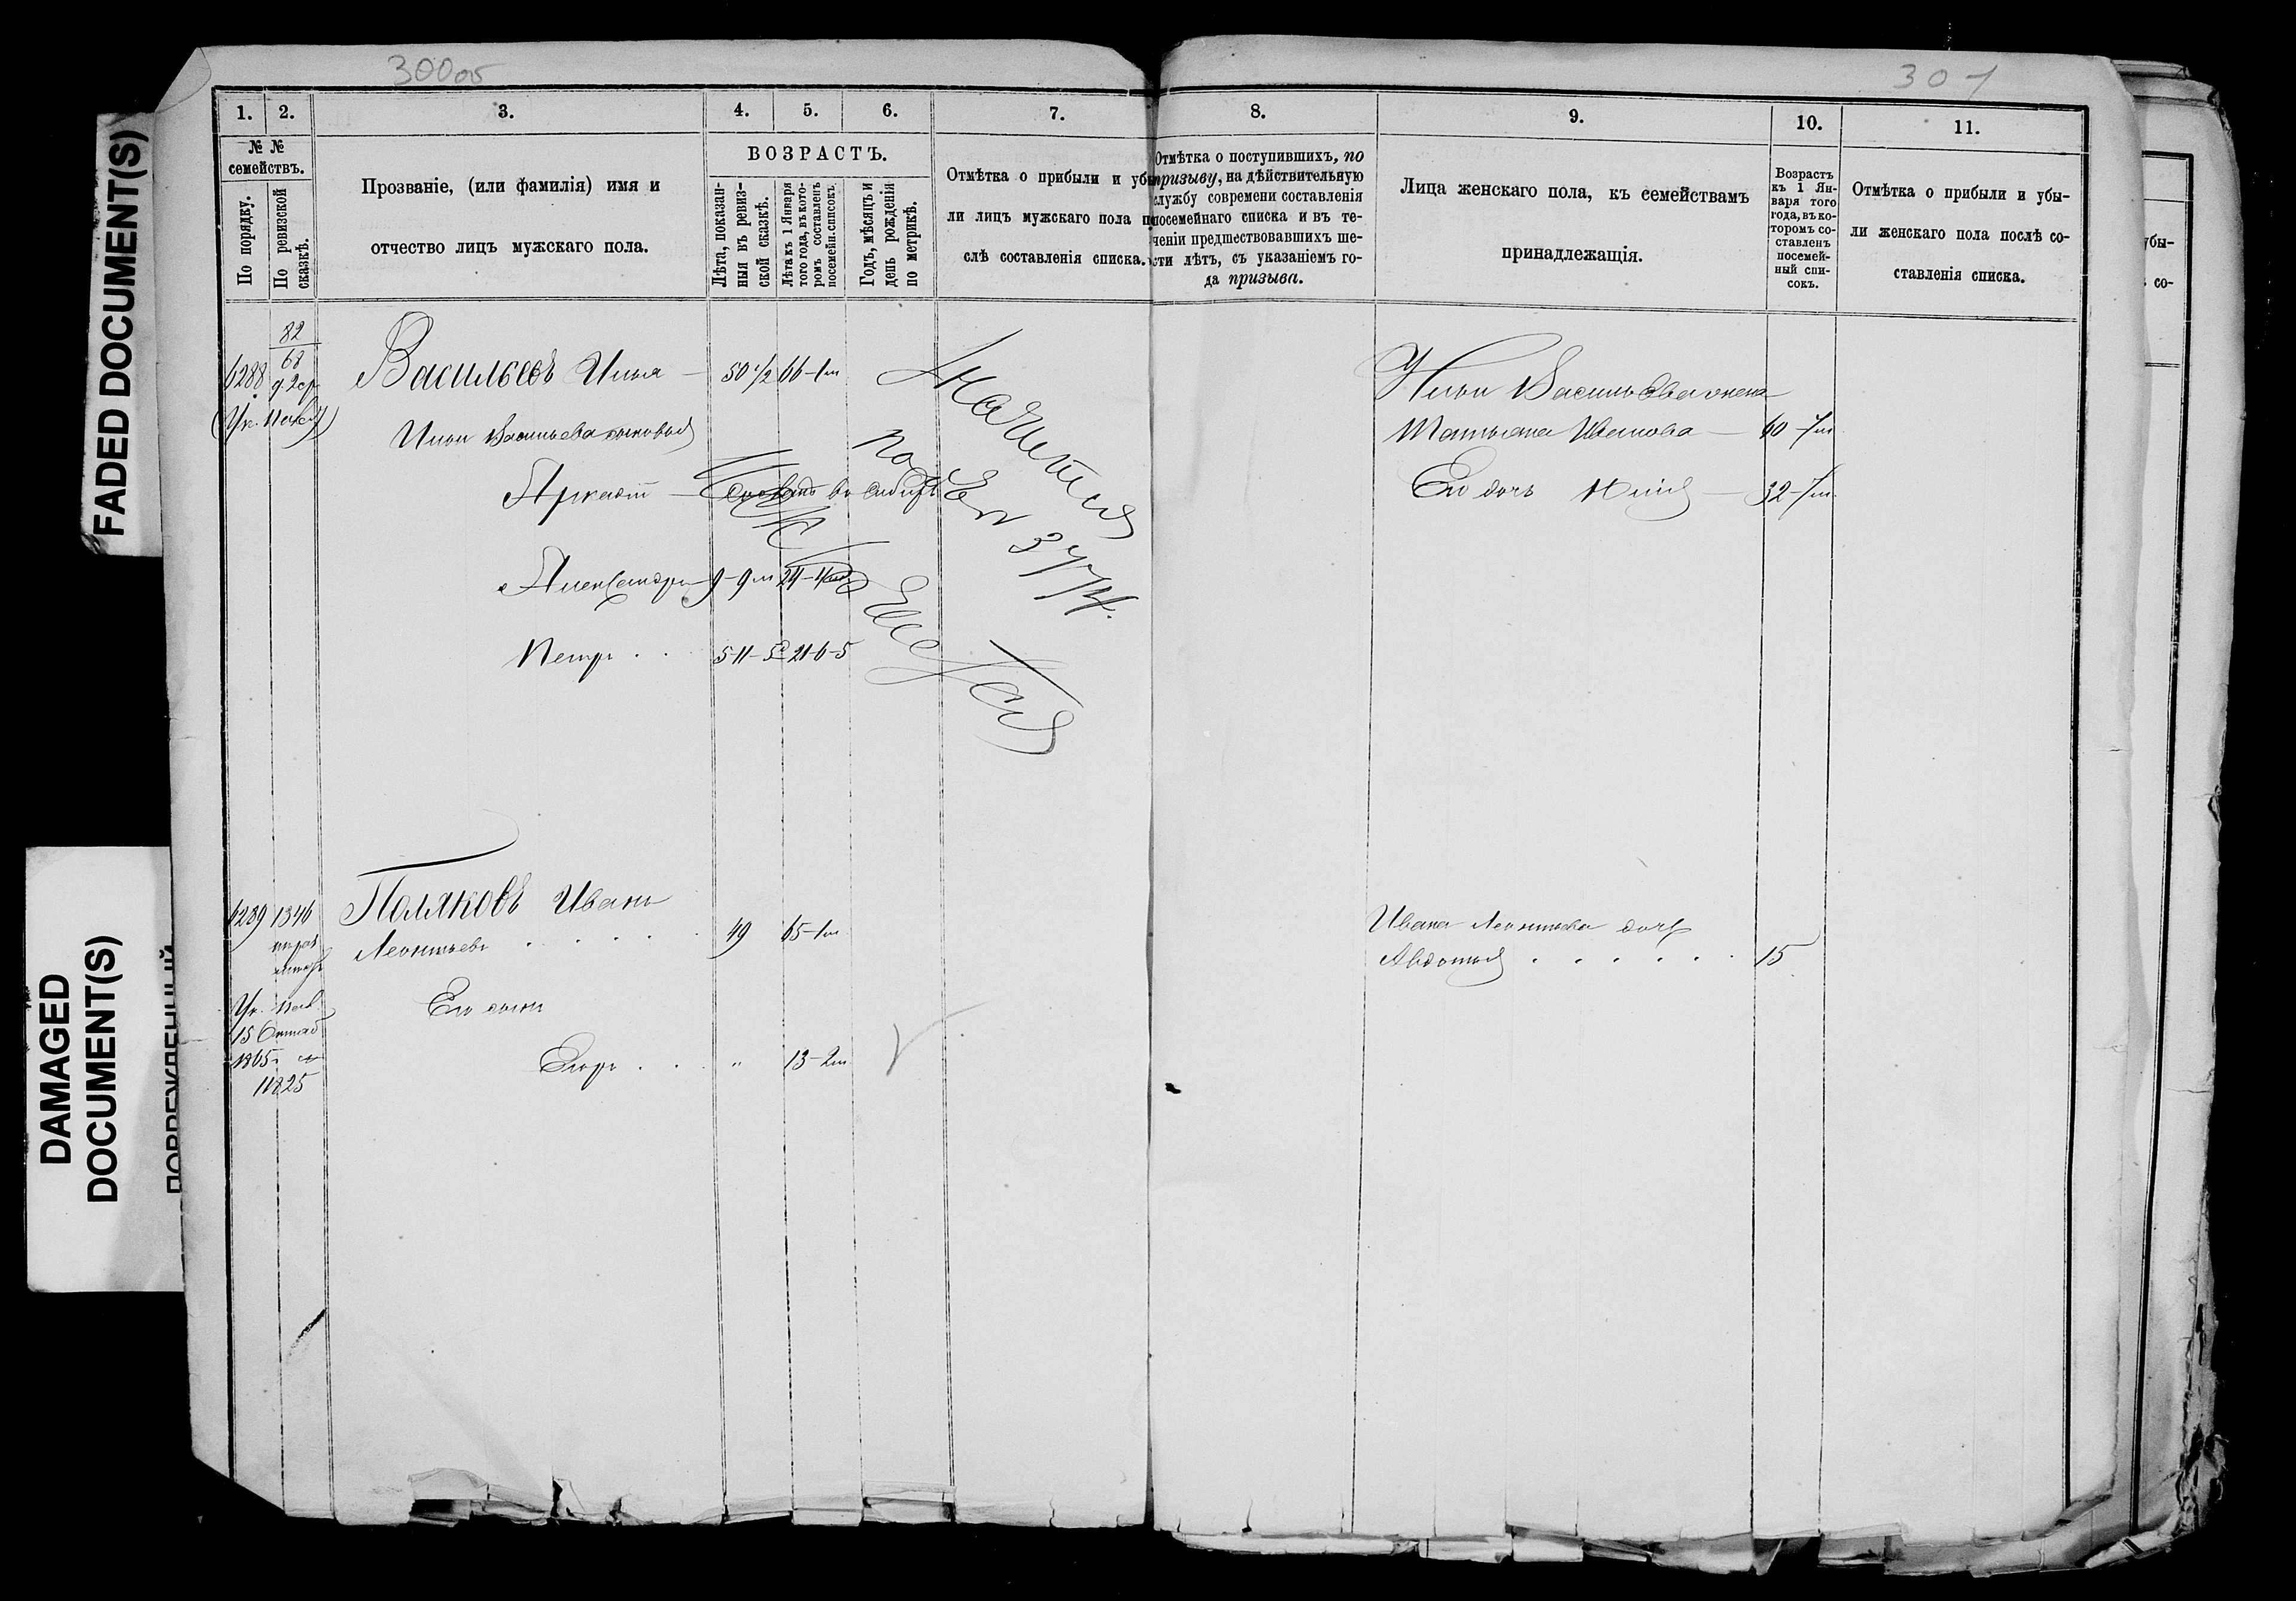 300об
301
FADED DOCUMENT(S)
DAMAGED
DOCUMENT(S)
1. 2. 3. 4. 5. 6. 7.
№ №
семействъ.
По порядку.
По ревизской
сказкѣ.
Прозваніе, (или фамилія) имя и
отчество лицъ мужскаго пола.
ВОЗРАСТЪ.
Лѣта, показан-
ныя въ ревиз-
ской сказкѣ.
Лѣта къ 1 Января
того года, въ кото-
ромъ составленъ
посемейн. списокъ.
Годъ, мѣсяцъ и
день рожденія
по метрикѣ.
Отмѣтка о прибыли и убы
ли лицъ мужскаго пола по
слѣ составленія списка.
8. 9. 10. 11.
Отмѣтка о поступившихъ, по
призыву, на дѣйствительную
службу современи составленія
посемейнаго списка и въ те-
ченіи предшествовавшихъ ше-
сти лѣтъ, съ указаніемъ го-
да призыва.
Лица женскаго пола, къ семействамъ
принадлежащія.
Возрастъ
къ 1 Ян-
варя того
года, въ ко-
торомъ со-
ставленъ
посемей-
ный спи-
сокъ.
Отмѣтка о прибыли и убы-
ли женскаго пола послѣ со-
ставленія списка.
убы-
со-
82
68
6288
Васильевъ Илья 50 1/2 66-1м
Ильи Васильева сыновья
Аркадій
въ Сибирь
Александръ 9-9м
Петръ 5-11-5 21-6-5
Значится
подъ
№ 3774.
Ильи Васильева жена
Татьяна Иванова 60-7м
Его дочь 32-7м
6289 1346
Поляковъ Иванъ
Леонтьевъ 49 65-1м
Ук.
15
1865
11825
Его сынъ
Егоръ " 13-2м
Ивана Леонтьева дочь
Авдотья 15